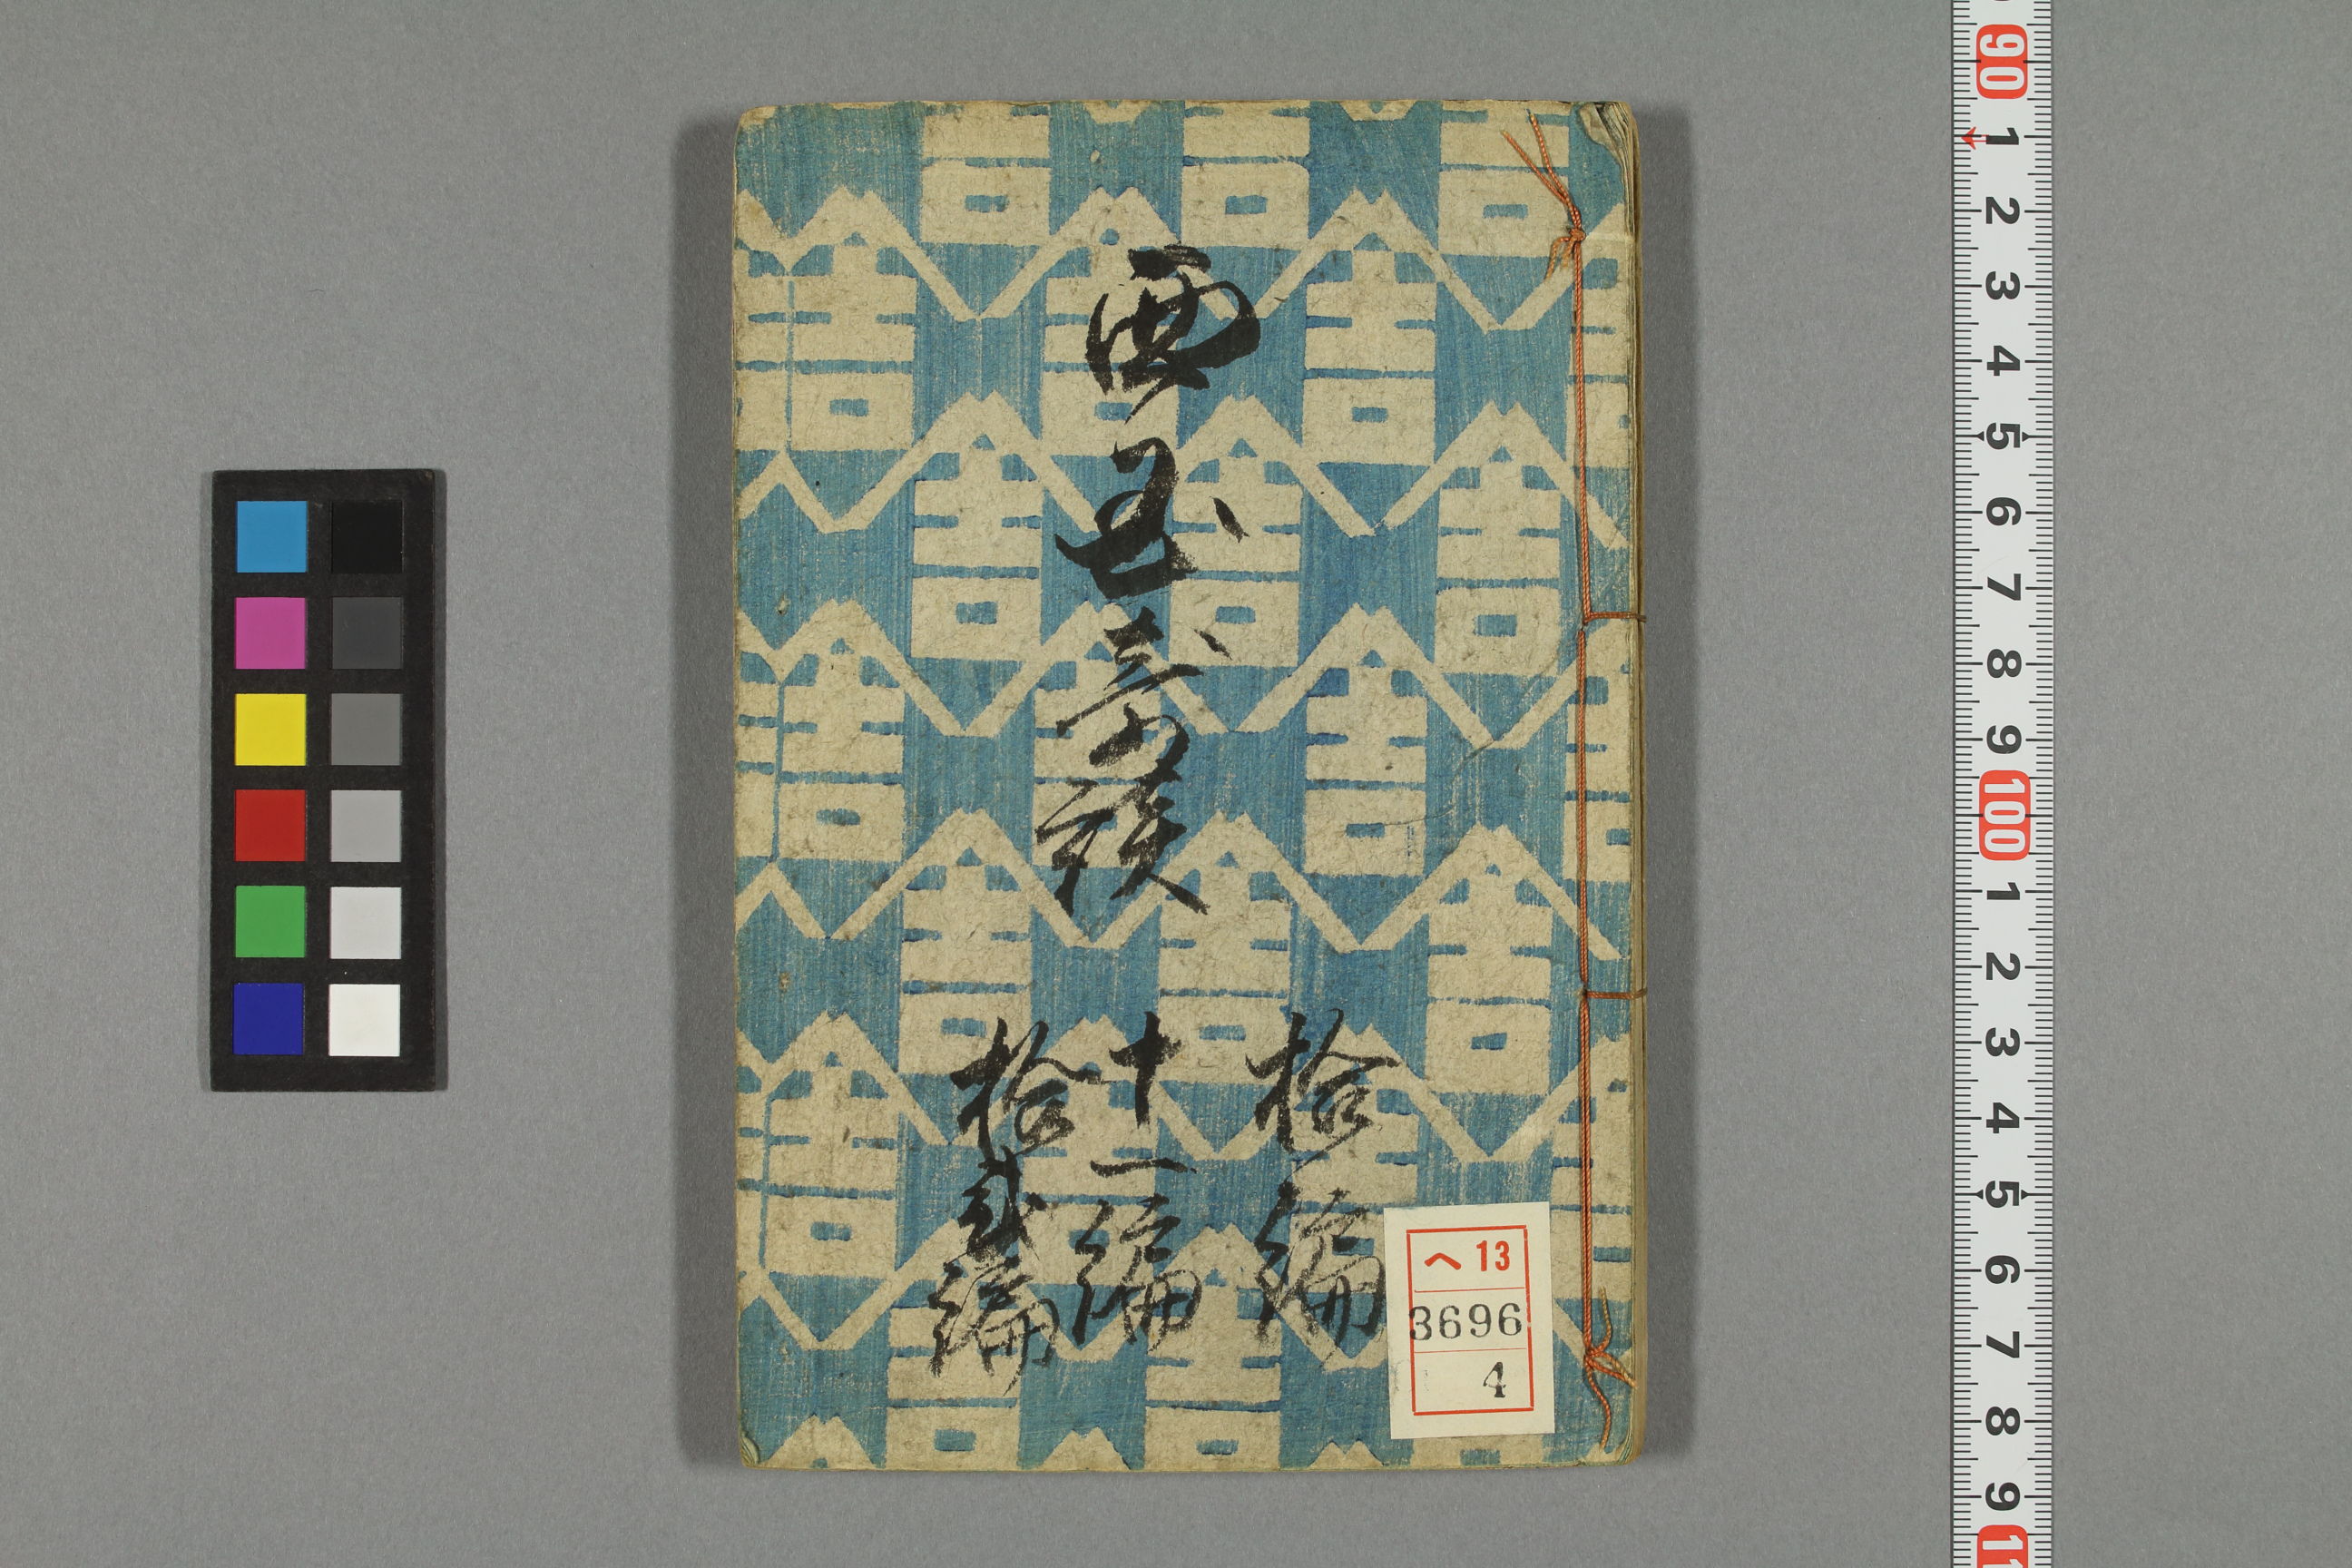 西国奇談
拾編
十一編
拾弐編
ヘ 13
3696
4
90
1
2
3
4
5
6
7
8
9
100
1
2
3
4
5
6
7
8
9